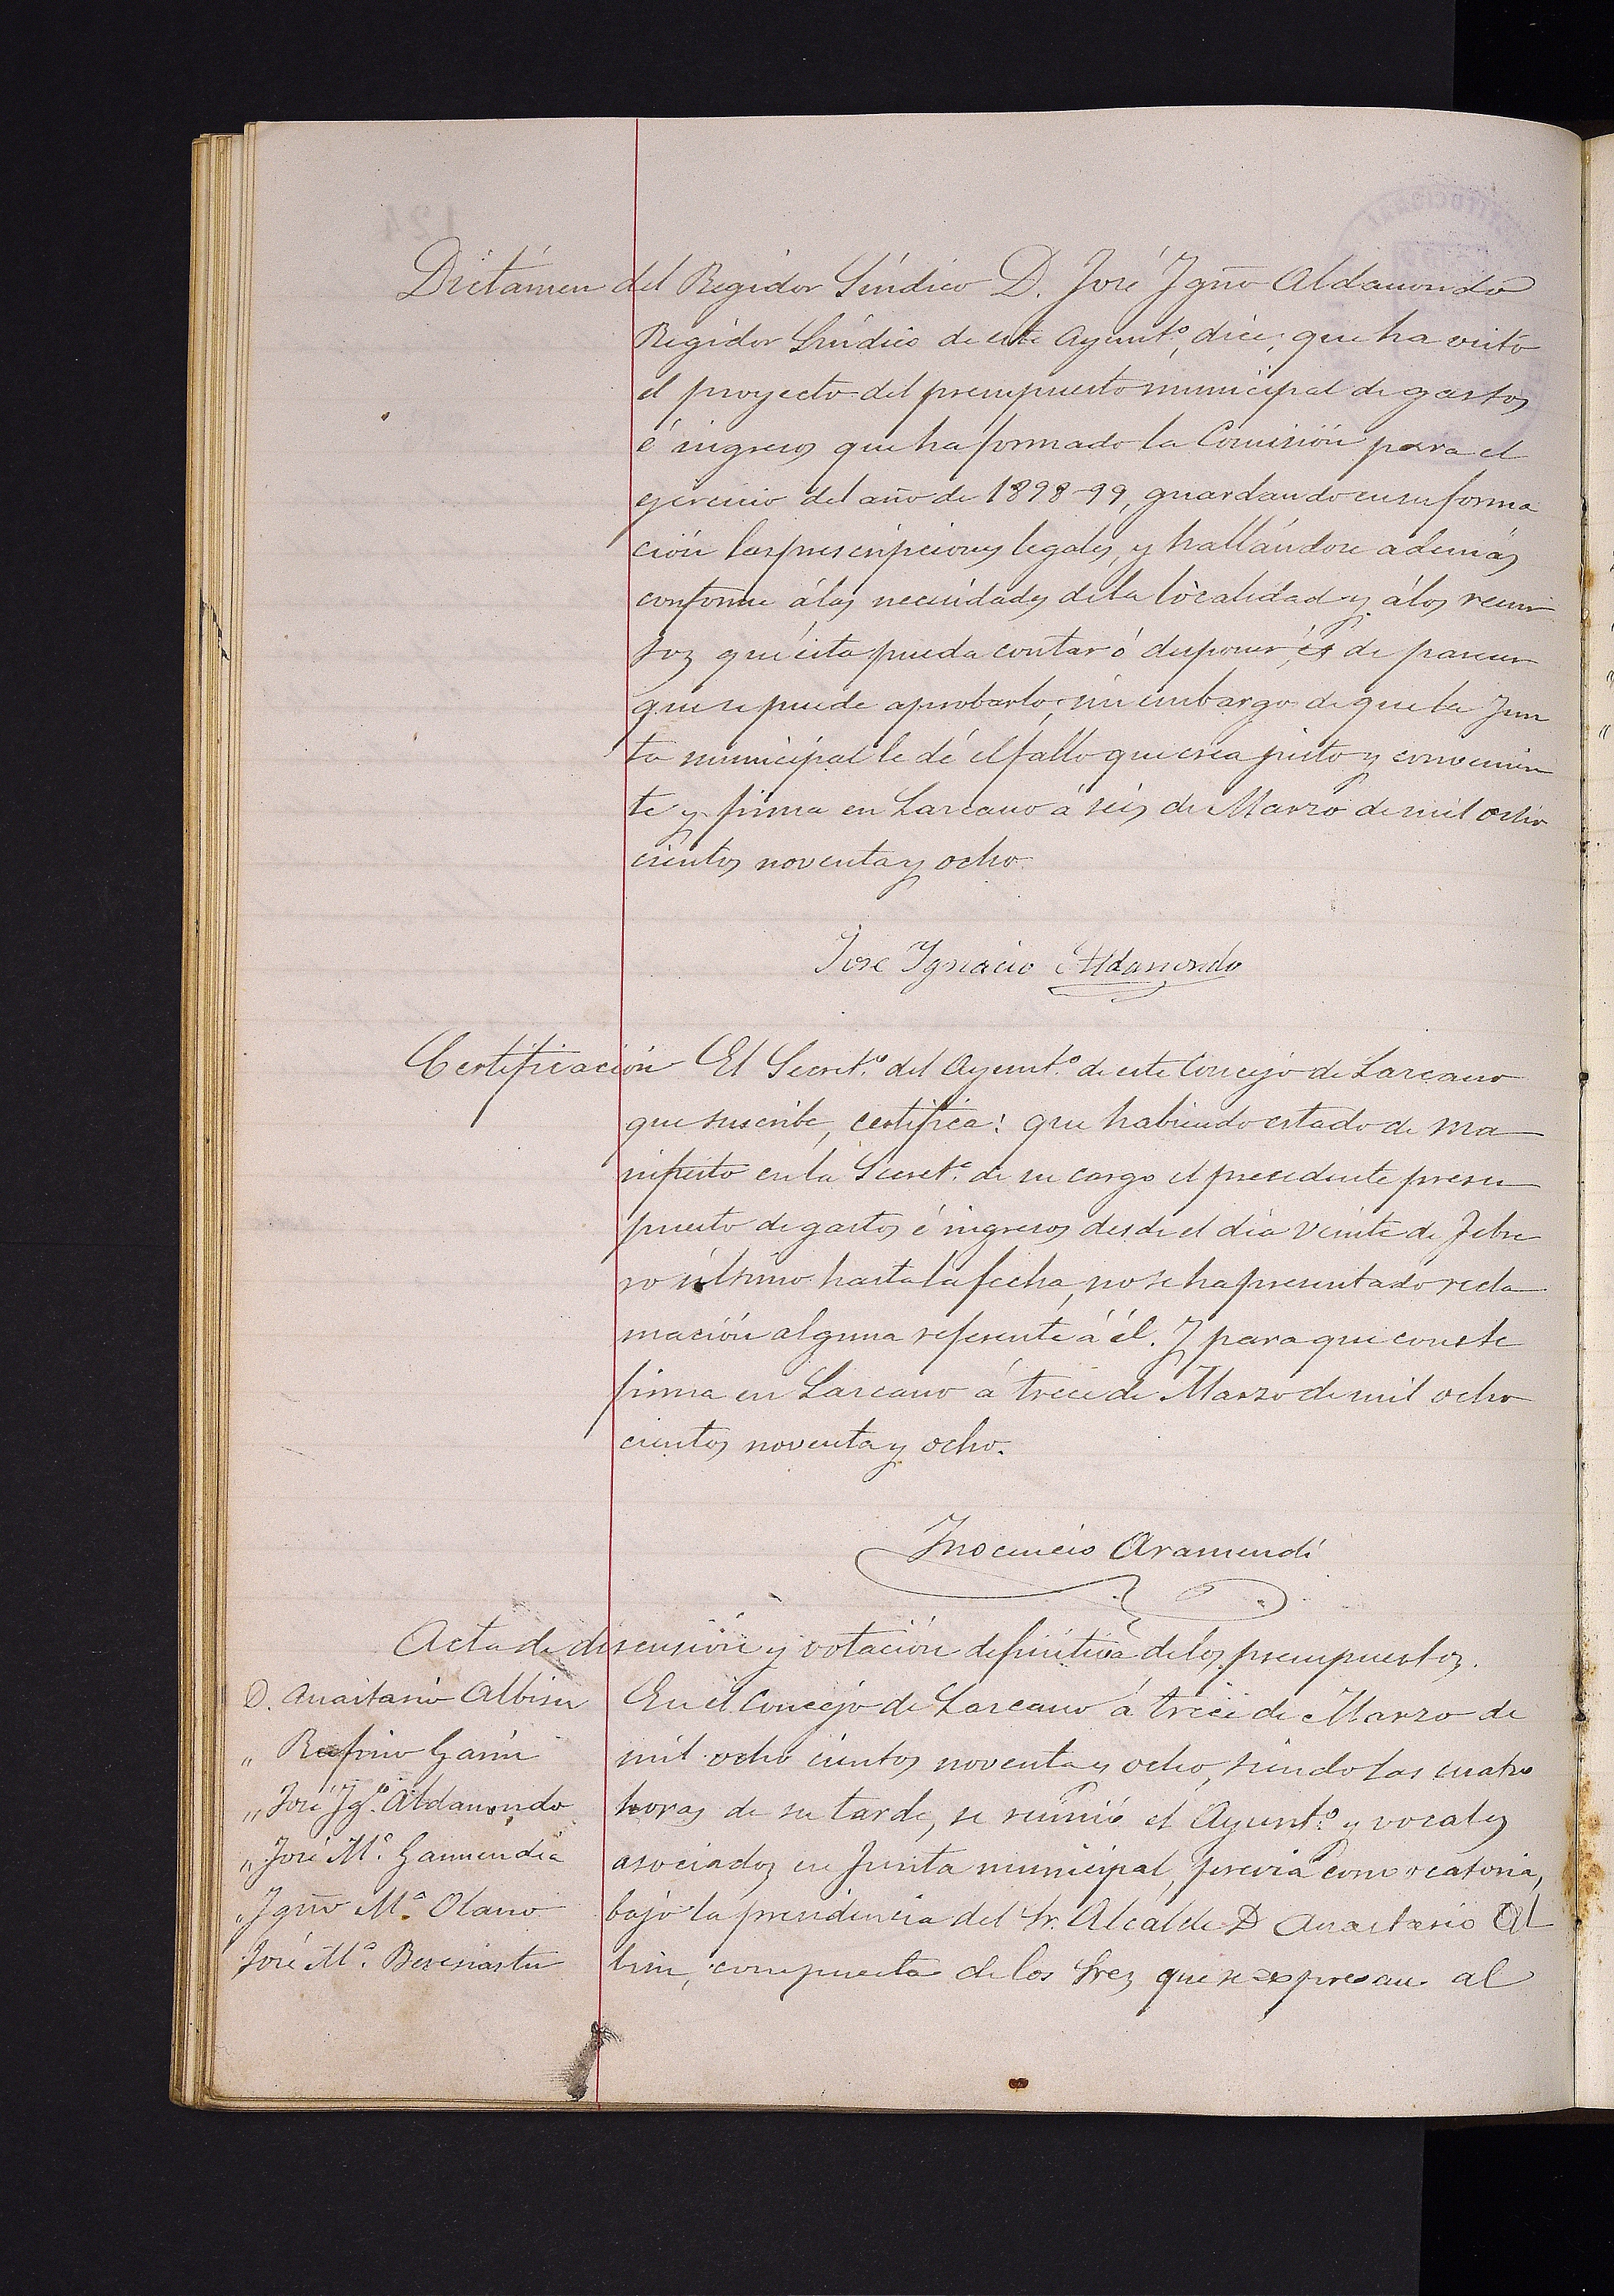 Dictámen del Regidor Síndico D. José Ygño Aldamondo
Regidor Síndico de este Ayunt.º, dice; que ha visto
el proyecto del presupuesto municipal de gastos
é ingresos que ha formado la Comisión para el
ejercicio del año de 1898-99, guardando en su forma
ción las prescripciones legales, y hallándose además
conforme á las necesidades de la localidad y á los recur
sos que ésta pueda contar ó disponer, és de parecer
que se puede aprobarlo, sin embargo de que la Jun
ta municipal le dé el fallo que crea justo y convenien
te y firma en Lazcano á seis de Marzo de mil ocho
cientos noventa y ocho.
José Ignacio Aldamondo
Certificación El Secret.º del Ayunt.º de este Concejo de Lazcano
que suscribe, certifica: que habiendo estado de ma
nifiesto en la Secret.ª de su cargo el precedente presu
puesto de gastos é ingresos desde el día veinte de Febre
ro último hasta la fecha, no se ha presentado recla
mación alguna referente á él. Y para que conste
firma en Lazcano á trece de Marzo de mil ocho
cientos noventa y ocho.
Inocencio Aramendi
Acta de discusión y votación definitiva de los presupuestos.
D. Anastasio Albisu
„ Rufino Garin
„ José Ygº. Aldamondo
„ José M.ª Garmendia
„ Ygño M.ª Olano
José M.ª Berasiartu
En el Concejo de Lazcano á trece de Marzo de
mil ocho cientos noventa y ocho, siendo las cuatro
horas de su tarde, se reunió el Ayunt.º y vocales
asociados en Junta municipal, previa convocatoria,
bajo la presidencia del Sr. Alcalde D Anastasio Al
bisu, compuesta de los Sres que se expresan al